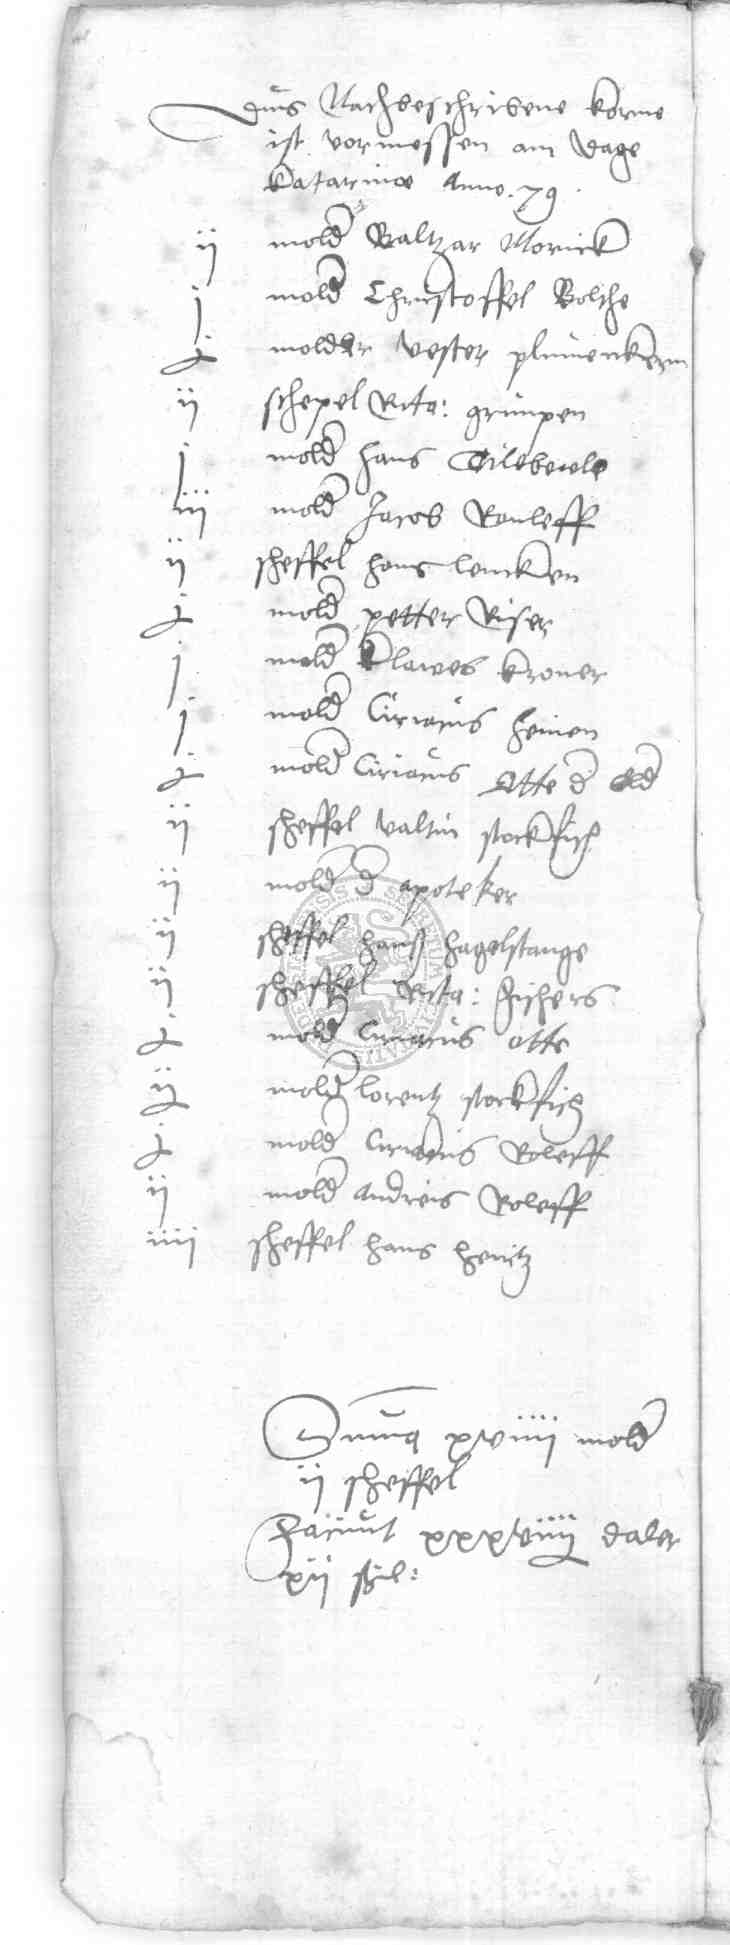 Duns Nachbeschribene korne
ist vormessen am dage
Katarinæ Anno . 79 .
ij mold Baltzar Mornick
j mold Christoffel Bolthe
j molder vester plumenkern
ij schepel Rita: grunpen
j mold hans
iij mold Jacob Rouleff
ij scheffel hans lencken
j mold petter Riser
j mold Klawes kroner
j mold Ciriacus heinen
j mold Ciriacus Otte d Old
ij scheffel valtin stockfisch
ij mold d apoteker
ij scheffel hanß hagelstange
ij scheffel Rita: fischers
j mold Ciriacus Otte
ij mold lorentz stockfisch
j mold Ciriacus Roleff
ij mold Andreis Roleff
iiij scheffel hans hentz
Summa xviiij mold
ij scheffel
Faciunt xxxviiij daler
xij schil: